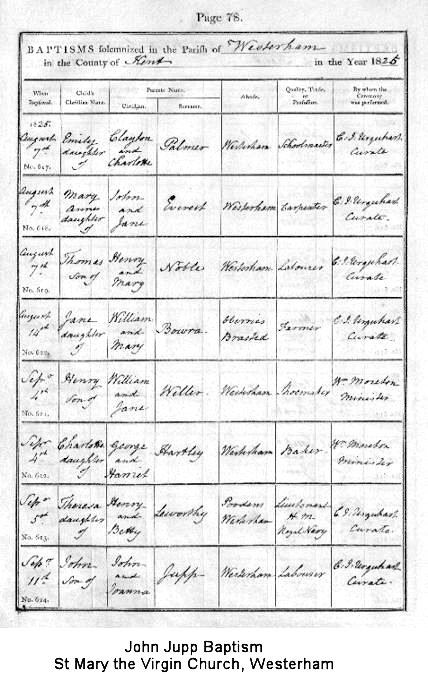 Page 78.
BAPTISMS solemnized in the Parish of Westerham
in the County of Kent in the Year 1825
When Baptized. Child's Christian Name. Parents Name. Abode. Quality, Trade, or Profession. By whom the Ceremony was performed.
Christian. Surname.
1825.
August 7th No. 617. Emily daughter of Clayton and Charlotte Palmer Westerham Schoolmaster C. I. Urquhart Curate
August 7th No. 618. Mary Annes daughter of John and Jane Everest Westerham Carpenter C. I. Urquhart Curate.
August 7th No. 619. Thomas Son of Henry and Mary Noble Westerham Labourer C. I. Urquhart Curate
August 14th No. 620. Jane daughter of William and Mary Bowra. Brasted Farmer C. I. Urquhart Curate
Sepr 4th No. 621. Henry Son of William and Jane Weller Westerham Shoemaker Wm Moreton Minister
Sepr 4th No. 622. Charlotte daughter of George and Harriet Hartley Westerham Baker Wm Moreton Minister
Sepr 5th No. 623. Theresa daughter of Henry and Betty Leworthy Westerham Lieutenant H. M. Royal Navy C. I. Urquhart Curate.
Sepr 11th No. 624. John Son of John and Joanna Jupp Westerham Labourer C. I. Urquhart Curate.
John Jupp Baptism
St Mary the Virgin Church, Westerham